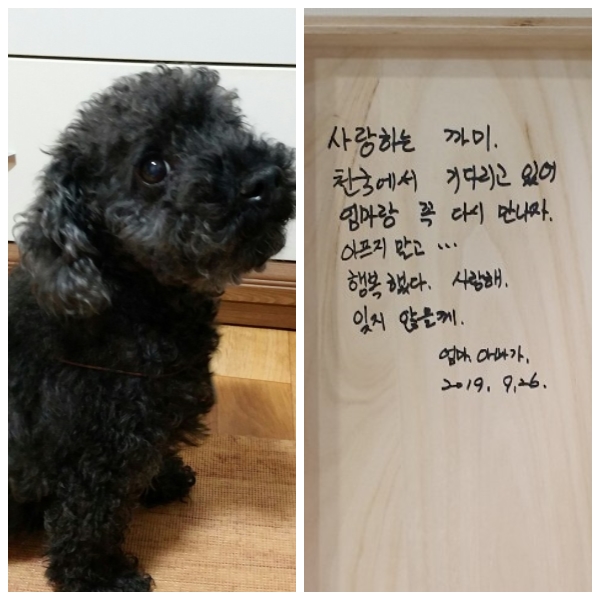 사랑하는 까미.
천국에서 기다리고 있어
엄마랑 꼭 다시 만나자.
아프지 말고 ...
행복했다. 사랑해.
잊지 않을께.
엄마, 아빠가.
2019. 9.26.